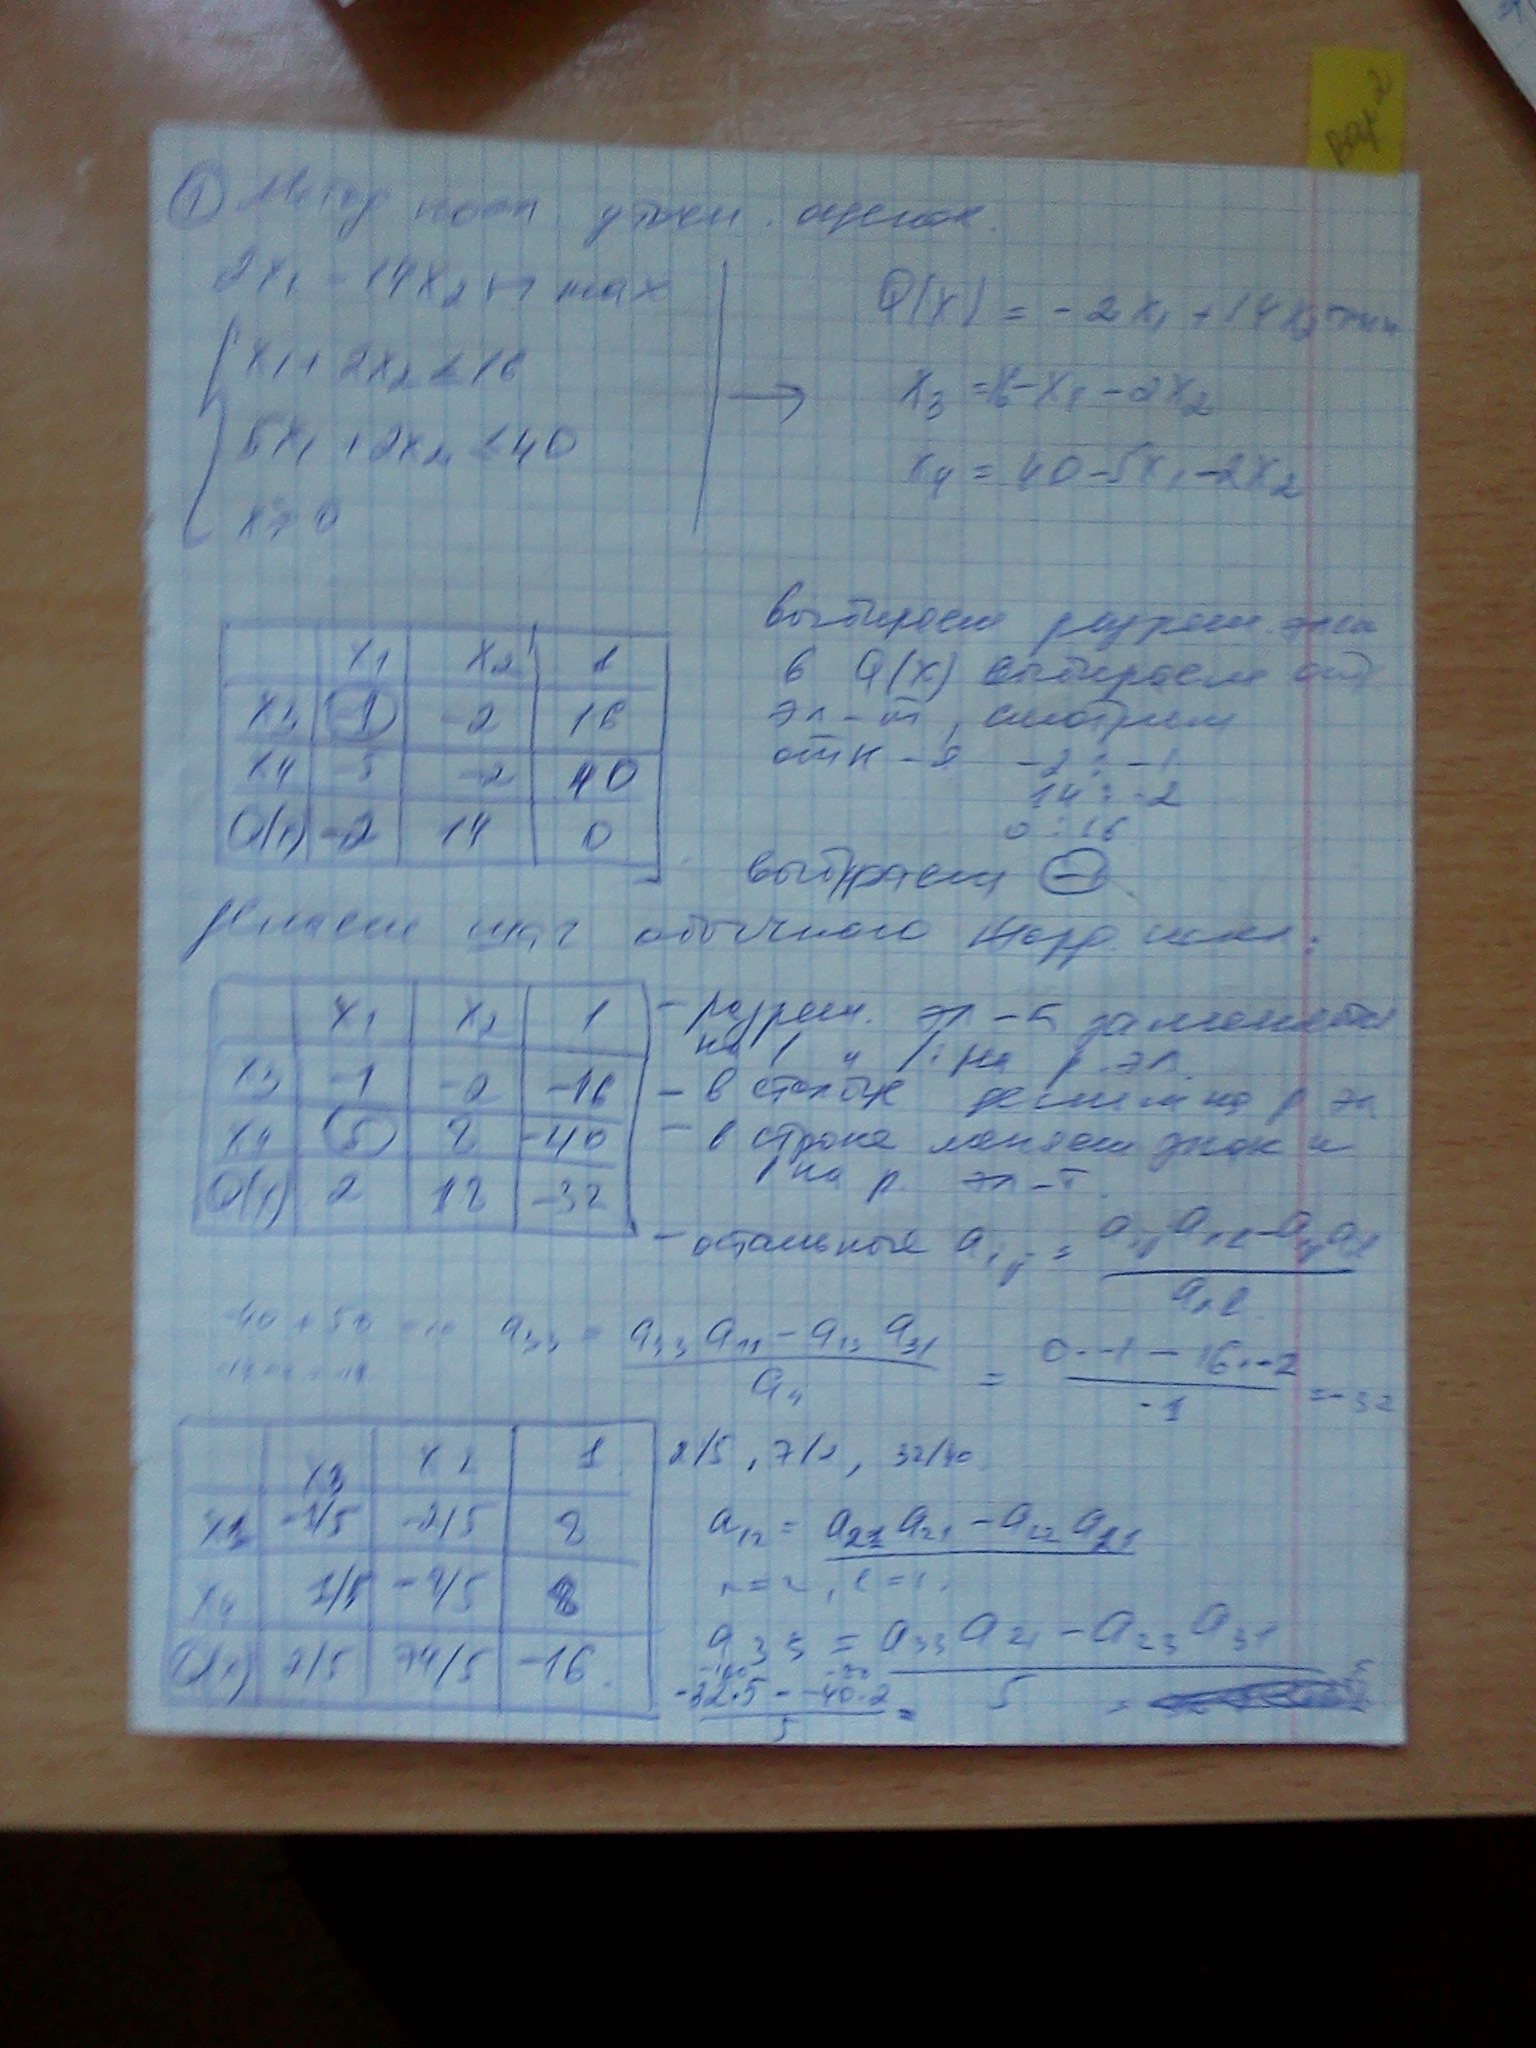 Вар 2
① Метод посл. уточн. оценок.
2x₁ - 14x₂ ↦ max
x₁ + 2x₂ ≤ 16
5x₁ + 2x₂ ≤ 40
x ≥ 0
→
Q(x) = -2x₁ + 14x₂ min
x₃ = 16 - x₁ - 2x₂
x₄ = 40 - 5x₁ - 2x₂
x₁ x₂ 1
x₃ -1 -2 16
x₄ -5 -2 40
Q(x) -2 14 0
выбираем разреш. эл
в Q(x) выбираем
эл-т, смотрим
отн-я -2 : -1
14 : -2
0 : 16
выбираем -1
делаем шаг обычного жорд. искл.:
x₁ x₂ 1
x₃ -1 -2 -16
x₄ 5 8 -40
Q(x) 2 18 -32
- разреш. эл-т заменяется
на 1 и /: на р. эл.
- в столбце делим на р эл
- в строке меняем знак и
/ на р. эл-т.
- остальные aᵢⱼ =
-40 + 50 = 10
a₃₃ = (a₃₃ a₁₁ - a₁₃ a₃₁) / a₁₁ = (0 · -1 - 16 · -2) / -1 = -32
x₃ x₂ 1
-1/5 -2/5 8
x₄ 1/5 8
Q(x) 2/5 74/5 -16
2/5, 7/2, 32/40
a₁₂ =
r = 2, l = 1.
a₃₃ = (a₃₃ a₂₁ - a₂₃ a₃₁) / 5 =
(-32·5 - -40·2) / 5 =